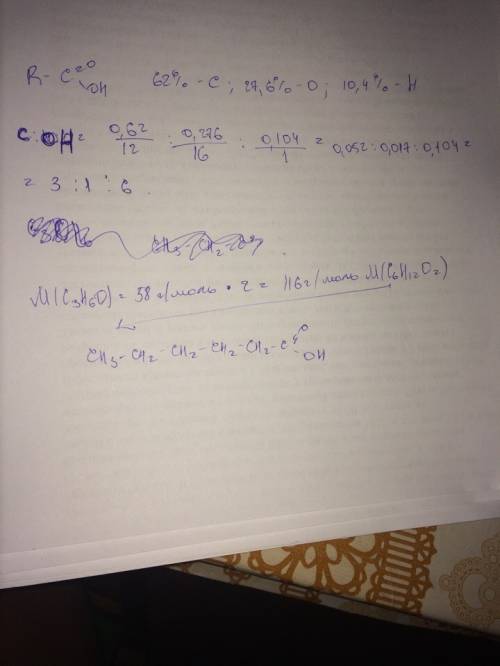 R - C =O
OH 62% - C; 27,6% - O; 10,4% - H
C : O : H = 0,62/12 : 0,276/16 : 0,104/1 = 0,052 : 0,017 : 0,104 =
= 3 : 1 : 6
M(C3H6O) = 58 г/моль · 2 = 116 г/моль M(C6H12O2)
CH3 - CH2 - CH2 - CH2 - CH2 - C =O
- OH